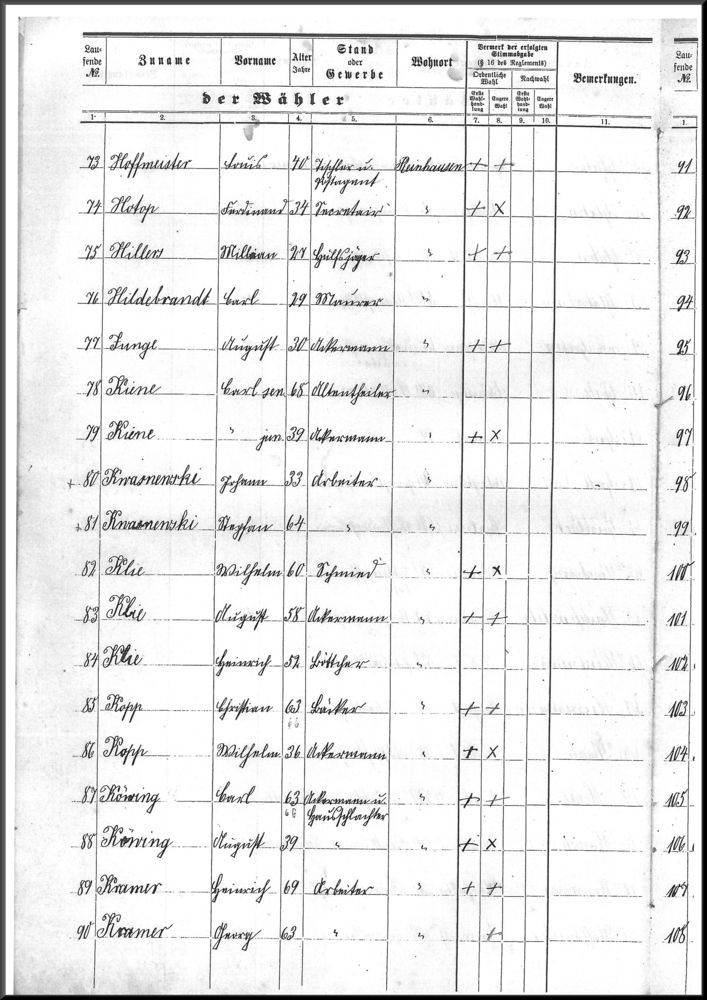 Lau-fende №. Zuname Vorname Alter Jahre Stand oder Gewerbe Wohnort Vermerk der erfolgten Stimmabgabe (§ 16 des Reglements) Bemerkungen. Lau-fende №.
Ordentliche Wahl Nachwahl
Erste Wahl-hand-lung Engere Wahl Erste Wahl-hand-lung Engere Wahl
der Wähler
1. 2. 3. 4. 5. 6. 7. 8. 9. 10. 11. 1.
73 Hoffmeister Louis 40 Tischler u. Postagent Reinhausen + + 91
74 Hotop Ferdinand 34 Secretair " + × 92
75 Hillers Millian 27 Hülfsjäger " + + 93
76 Hildebrandt Carl 29 Maurer " 94
77 Junge August 30 Ackermann " + + 95
78 Kiene Carl sen 65 Altentheiler " 96
79 Kiene " jun. 39 Ackermann " + × 97
+ 80 Kwasnewski Johann 33 Arbeiter " 98
+ 81 Kwasnewski Stephan 64 " " 99
82 Klie Wilhelm 60 Schmied " + × 100
83 Klie August 58 Ackermann " + + 101
84 Klie Heinrich 52 Böttcher " 102
85 Kopp Christian 63 Bäcker " + + 103
66
86 Kopp Wilhelm 36 Ackermann " + × 104
87 Köwing Carl 63 Ackermann u. Hausschlachter " + + 105
66
88 Köwing August 39 " " + × 106
89 Kramer Heinrich 69 Arbeiter " + + 107
90 Kramer Georg 63 " " + 108